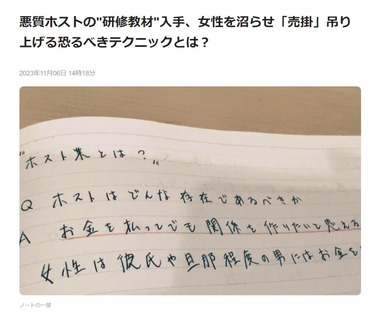 悪質ホストの"研修教材"入手、女性を沼らせ「売掛」吊り
上げる恐るべきテクニックとは？
2023年11月06日 14時18分
"ホスト業とは？"
Q ホストはどんな存在であるべきか
A お金を払ってでも関係を作りたいと思える
女性は彼氏や旦那程度の男にはお金を
ノートの一部